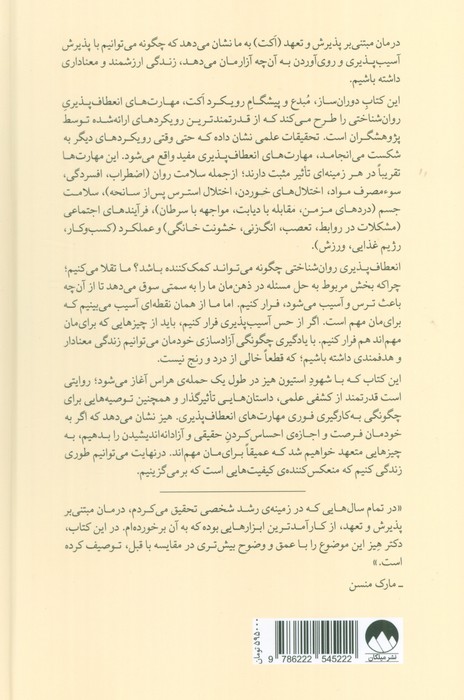 درمان مبتنی‌بر پذیرش و تعهد (اَکت) به ما نشان می‌دهد که چگونه می‌توانیم با پذیرش
آسیب‌پذیری و روی‌آوردن به آن‌چه آزارمان می‌دهد، زندگی ارزشمند و معناداری
داشته باشیم.
این کتابِ دوران‌ساز، مُبدع و پیشگامِ رویکردِ اَکت، مهارت‌های انعطاف‌پذیریِ
روان‌شناختی را طرح می‌کند که از قدرتمندترین رویکردهای ارائه‌شده توسط
پژوهشگران است. تحقیقات علمی نشان داده که حتی وقتی رویکردهای دیگر به
شکست می‌انجامد، مهارت‌های انعطاف‌پذیری مفید واقع می‌شود. این مهارت‌ها
تقریباً در هر زمینه‌ای تأثیر مثبت دارند؛ ازجمله سلامت روان (اضطراب، افسردگی،
سوءمصرف مواد، اختلال‌های خوردن، اختلال استرس پس‌از سانحه)، سلامت
جسم (دردهای مزمن، مقابله با دیابت، مواجهه با سرطان)، فرآیندهای اجتماعی
(مشکلات در روابط، تعصب، انگ‌زنی، خشونت خانگی) و عملکرد (کسب‌وکار،
رژیم غذایی، ورزش).
انعطاف‌پذیری روان‌شناختی چگونه می‌تواند کمک‌کننده باشد؟ ما تقلا می‌کنیم؛
چراکه بخش مربوط به حل مسئله در ذهن‌مان ما را به سمتی سوق می‌دهد تا از آن‌چه
باعث ترس و آسیب می‌شود، فرار کنیم. اما ما از همان نقطه‌ای آسیب می‌بینیم که
برای‌مان مهم است. اگر از حس آسیب‌پذیری فرار کنیم، باید از چیزهایی که برای‌مان
مهم‌اند هم فرار کنیم. با یادگیری چگونگی آزادسازی خودمان می‌توانیم زندگی معنادار
و هدفمندی داشته باشیم؛ که قطعاً خالی از درد و رنج نیست.
این کتاب که با شهودِ استیون هیز در طول یک حمله‌ی هراس آغاز می‌شود؛ روایتی
است قدرتمند از کشفی علمی، داستان‌هایی تأثیرگذار و همچنین توصیه‌هایی برای
چگونگی به‌کارگیری فوری مهارت‌های انعطاف‌پذیری. هیز نشان می‌دهد که اگر به
خودمان فرصت و اجازه‌ی احساس‌کردنِ حقیقی و آزادانه‌اندیشیدن را بدهیم، به
چیزهایی متعهد خواهیم شد که عمیقاً برای‌مان مهم‌اند. درنهایت می‌توانیم طوری
زندگی کنیم که منعکس‌کننده‌ی کیفیت‌هایی است که برمی‌گزینیم.
«در تمام سال‌هایی که در زمینه‌ی رشد شخصی تحقیق می‌کردم، درمان مبتنی‌بر
پذیرش و تعهد، از کارآمدترین ابزارهایی بوده که به آن برخورده‌ام. در این کتاب،
دکتر هِیز این موضوع را با عمق و وضوح بیش‌تری در مقایسه با قبل، توصیف کرده
است.»
ـ مارک منسن
۵۹۵۰۰۰ تومان
9 786222 545222
نشر میلکان